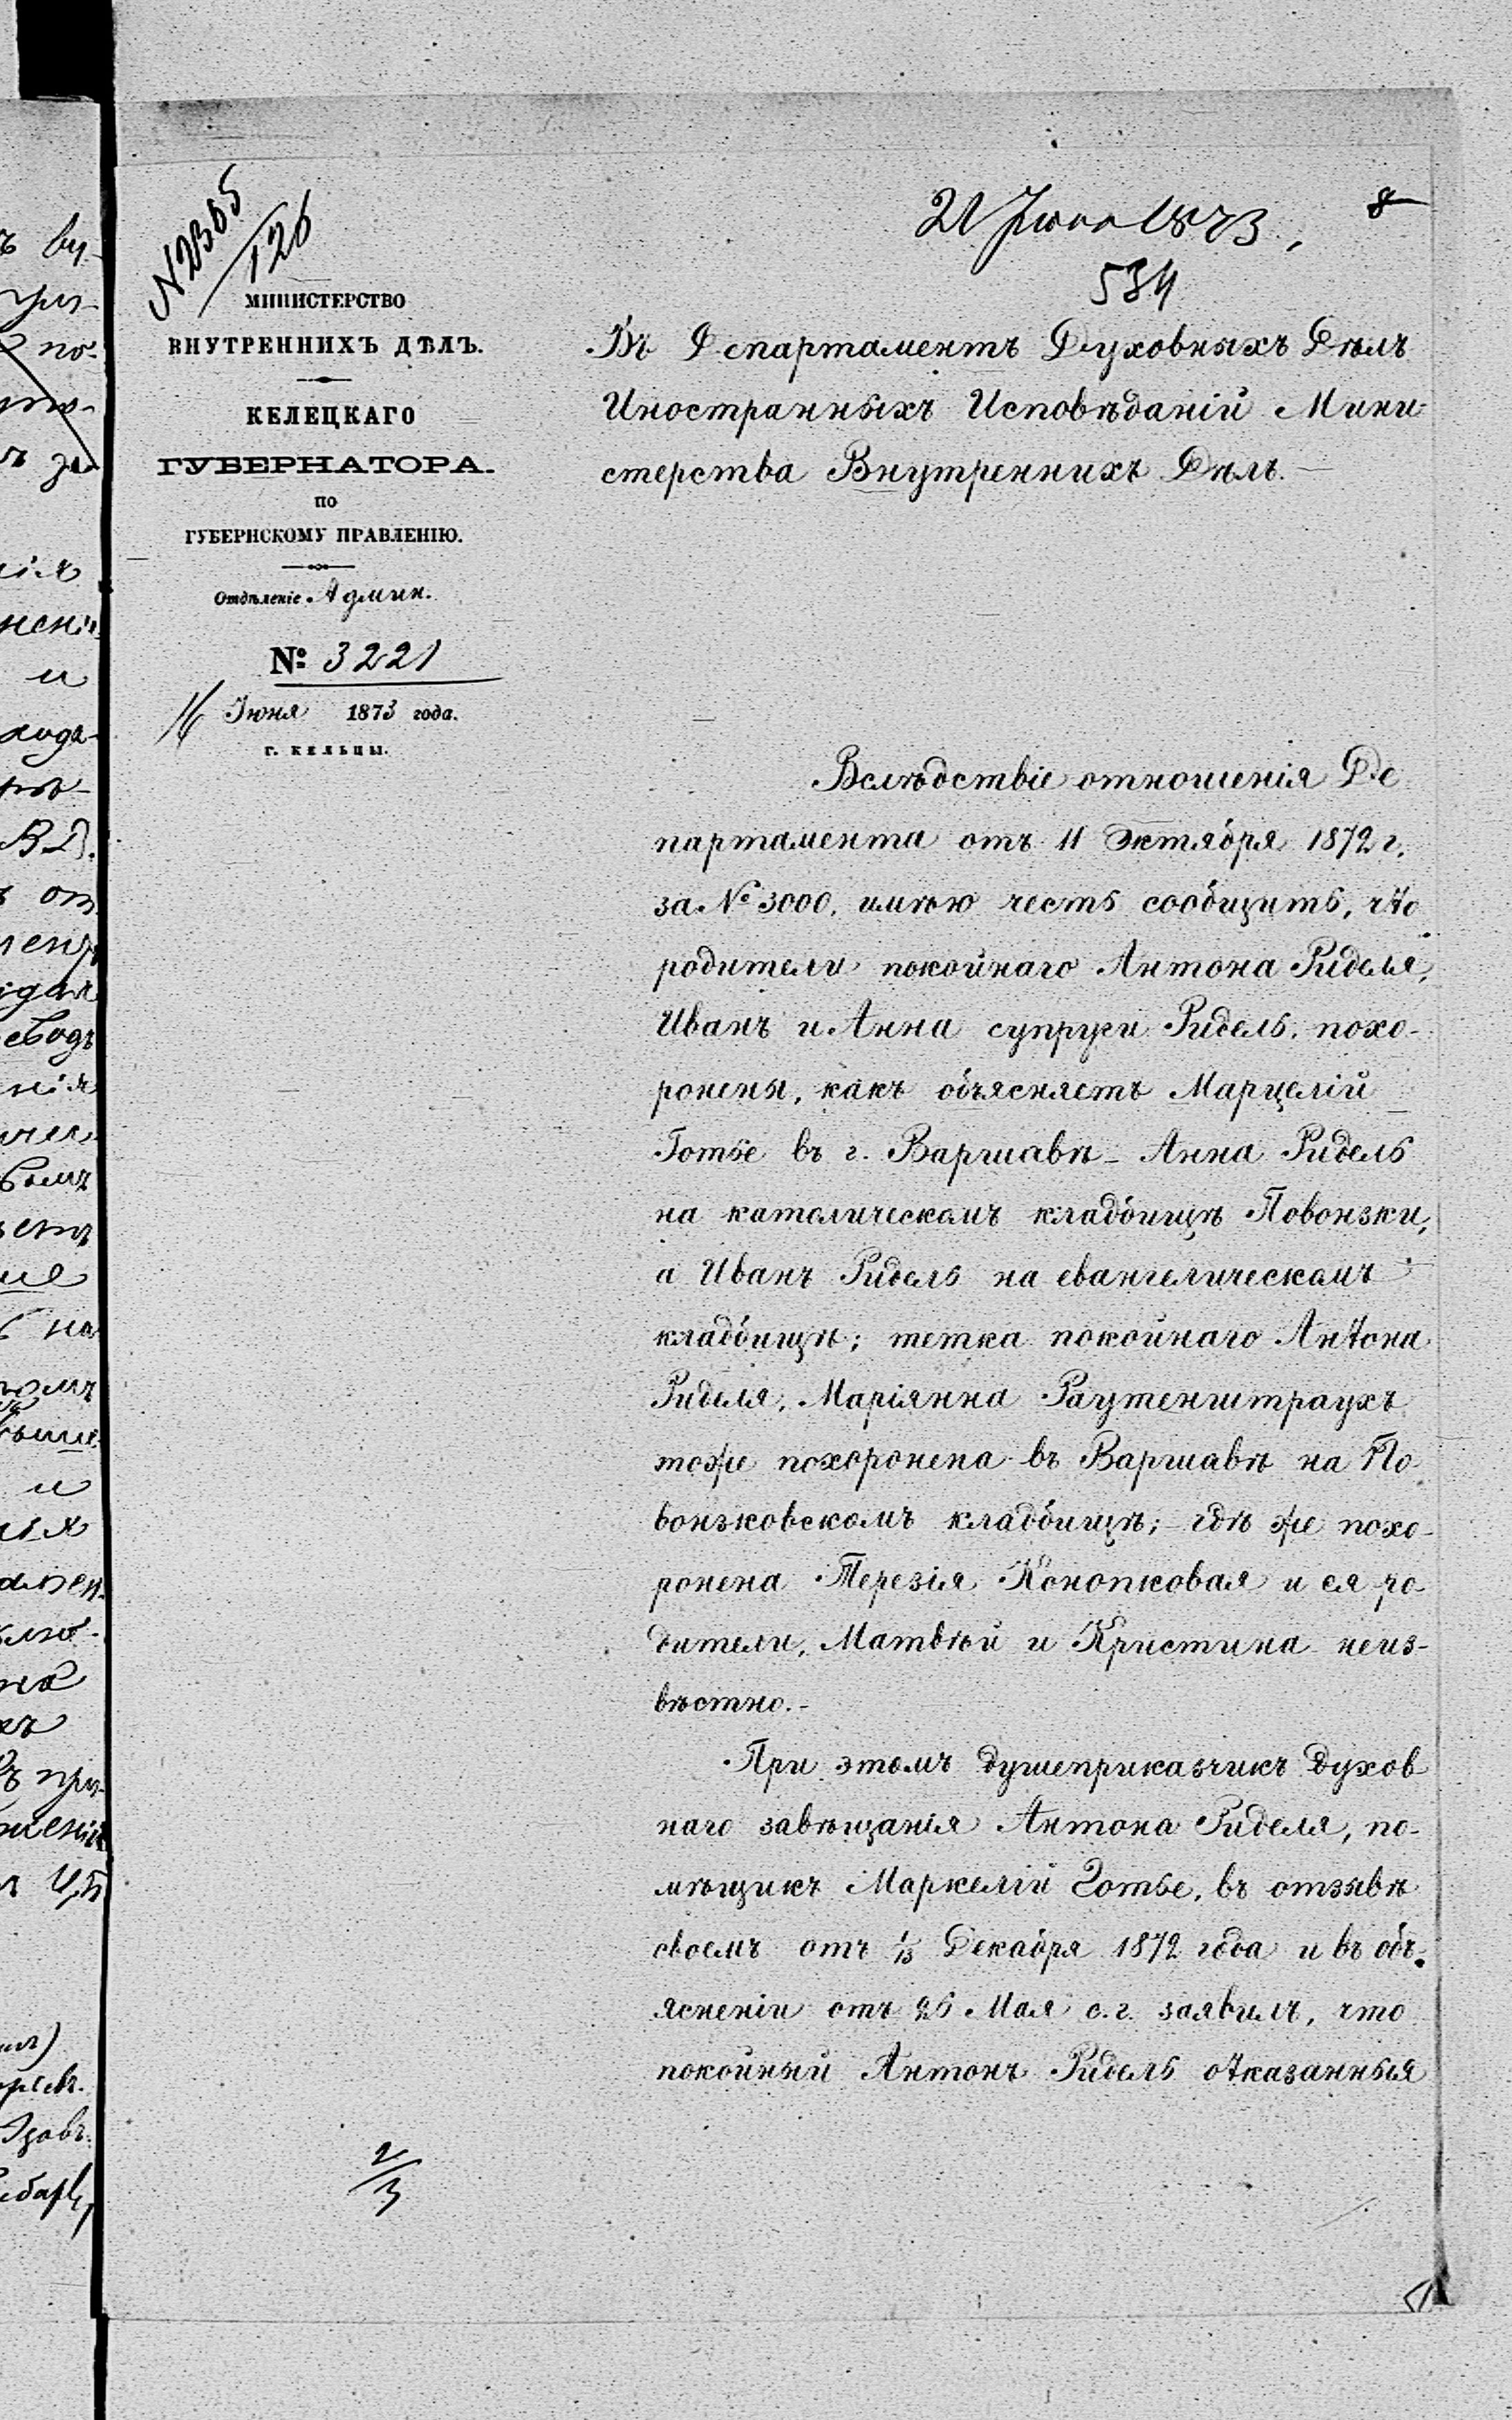 № 2365
126
21 Июня 1873.
8
534
МИНИСТЕРСТВО
ВНУТРЕННИХЪ ДѢЛЪ.
КЕЛЕЦКАГО
ГУБЕРНАТОРА.
ПО
ГУБЕРНСКОМУ ПРАВЛЕНІЮ.
Отдѣленіе Админ.
№ 3221
16 Іюня 1873 года.
г. КѢЛЬЦЫ.
Въ Департаментъ Духовныхъ Дѣлъ
Иностранныхъ Исповѣданій Мини-
стерства Внутреннихъ Дѣлъ.
Вслѣдствіе отношенія Де
партамента отъ 11 Октября 1872 г.
за № 3000, имѣю честь сообщить, что
родители покойнаго Антона Риделя,
Иванъ и Анна супруги Ридель, похо-
ронены, какъ объясняетъ Марцелій
Готье въ г. Варшавѣ – Анна Ридель
на католическомъ кладбищѣ Повонзки,
а Иванъ Ридель на евангелическомъ
кладбищѣ; тетка покойнаго Антона
Риделя, Маріянна Раутенштраухъ
тоже похоронена въ Варшавѣ на По
вонзковскомъ кладбищѣ; – гдѣ же похо-
ронена Терезія Конопковая и ея ро
дители, Матвѣй и Кристина неиз-
вѣстно. –
При этомъ душеприказчикъ духов
наго завѣщанія Антона Риделя, по-
мѣщикъ Маркелій Готье, въ отзывѣ
своемъ отъ 1/13 Декабря 1872 года и въ объ-
ясненіи отъ 26 Мая с. г. заявилъ, что
покойный Антонъ Ридель отказанныя
2/3